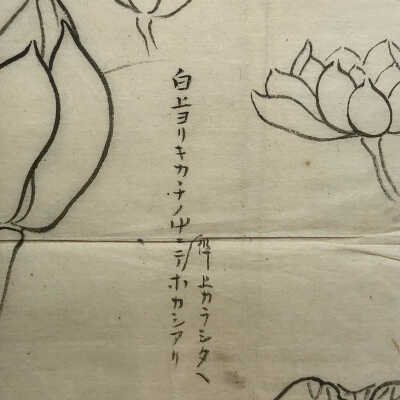 白上ヨリキカナノ中ニテホカシアリ
上カラシタヘ